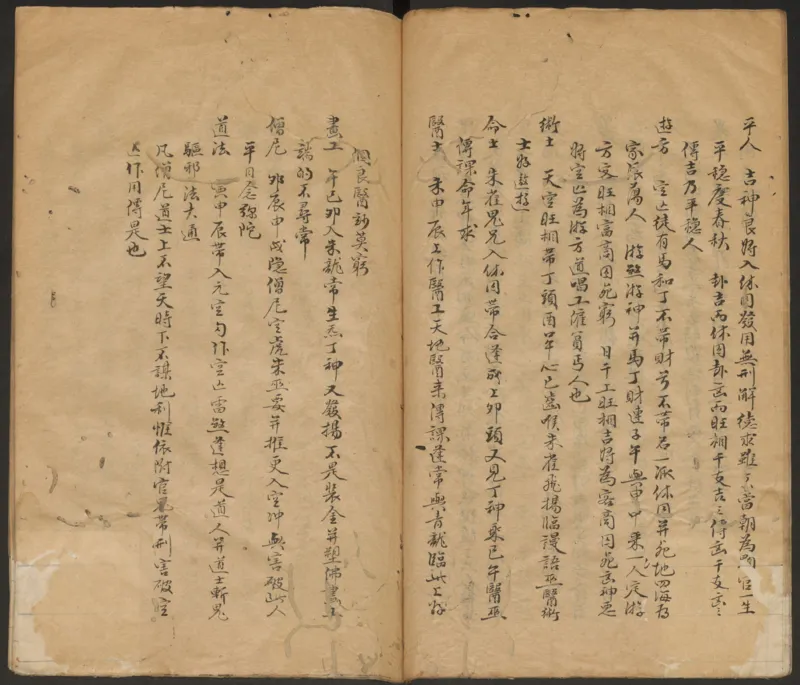 平人 吉神良將入休囚發用無刑解德求雖不當朝為顯官一生
平穩度春秋 卦吉而休囚卦凶而旺相干支吉三傳凶干支凶三
傳吉乃平穩人
遊方 空亡徒有馬和丁不帶財兮不帶名一派休囚并死地四海為
家浪蕩人 游煞游神并馬丁財連子午與申中乘一人定游
方交旺相富商囚死窮 日干上旺相吉將為客商囚死凶神惡
將空亡為游方道唱工催肓丐人也
術士 天空旺相帶丁頭酉是心巳齒喉朱雀飛揚臨漫語巫醫術
士好遨遊
命士 朱雀鬼兄入休囚帶合蓬 上卯頭又見丁神乘巳午醫巫
傳課命年求
醫士 未申辰上作醫工天地醫來得課蓬常與青龍臨此上好
個良醫訪莫窮
畫工 午巳卯入朱龍常生炁丁神又發揚不是裝金并塑佛畫工
端的不尋常
僧尼 卯辰申戌隱僧尼空虎朱巫要并推更入空冲無害破此人
平日念弥陀
道法 寅申辰帶入元空勾作空亡雷煞蓬想是道人并道士斬鬼
驅邪法大通
凡僧尼道士上不望天時下不謀地利惟依附官鬼帶刑害破空
亡作用傳是也